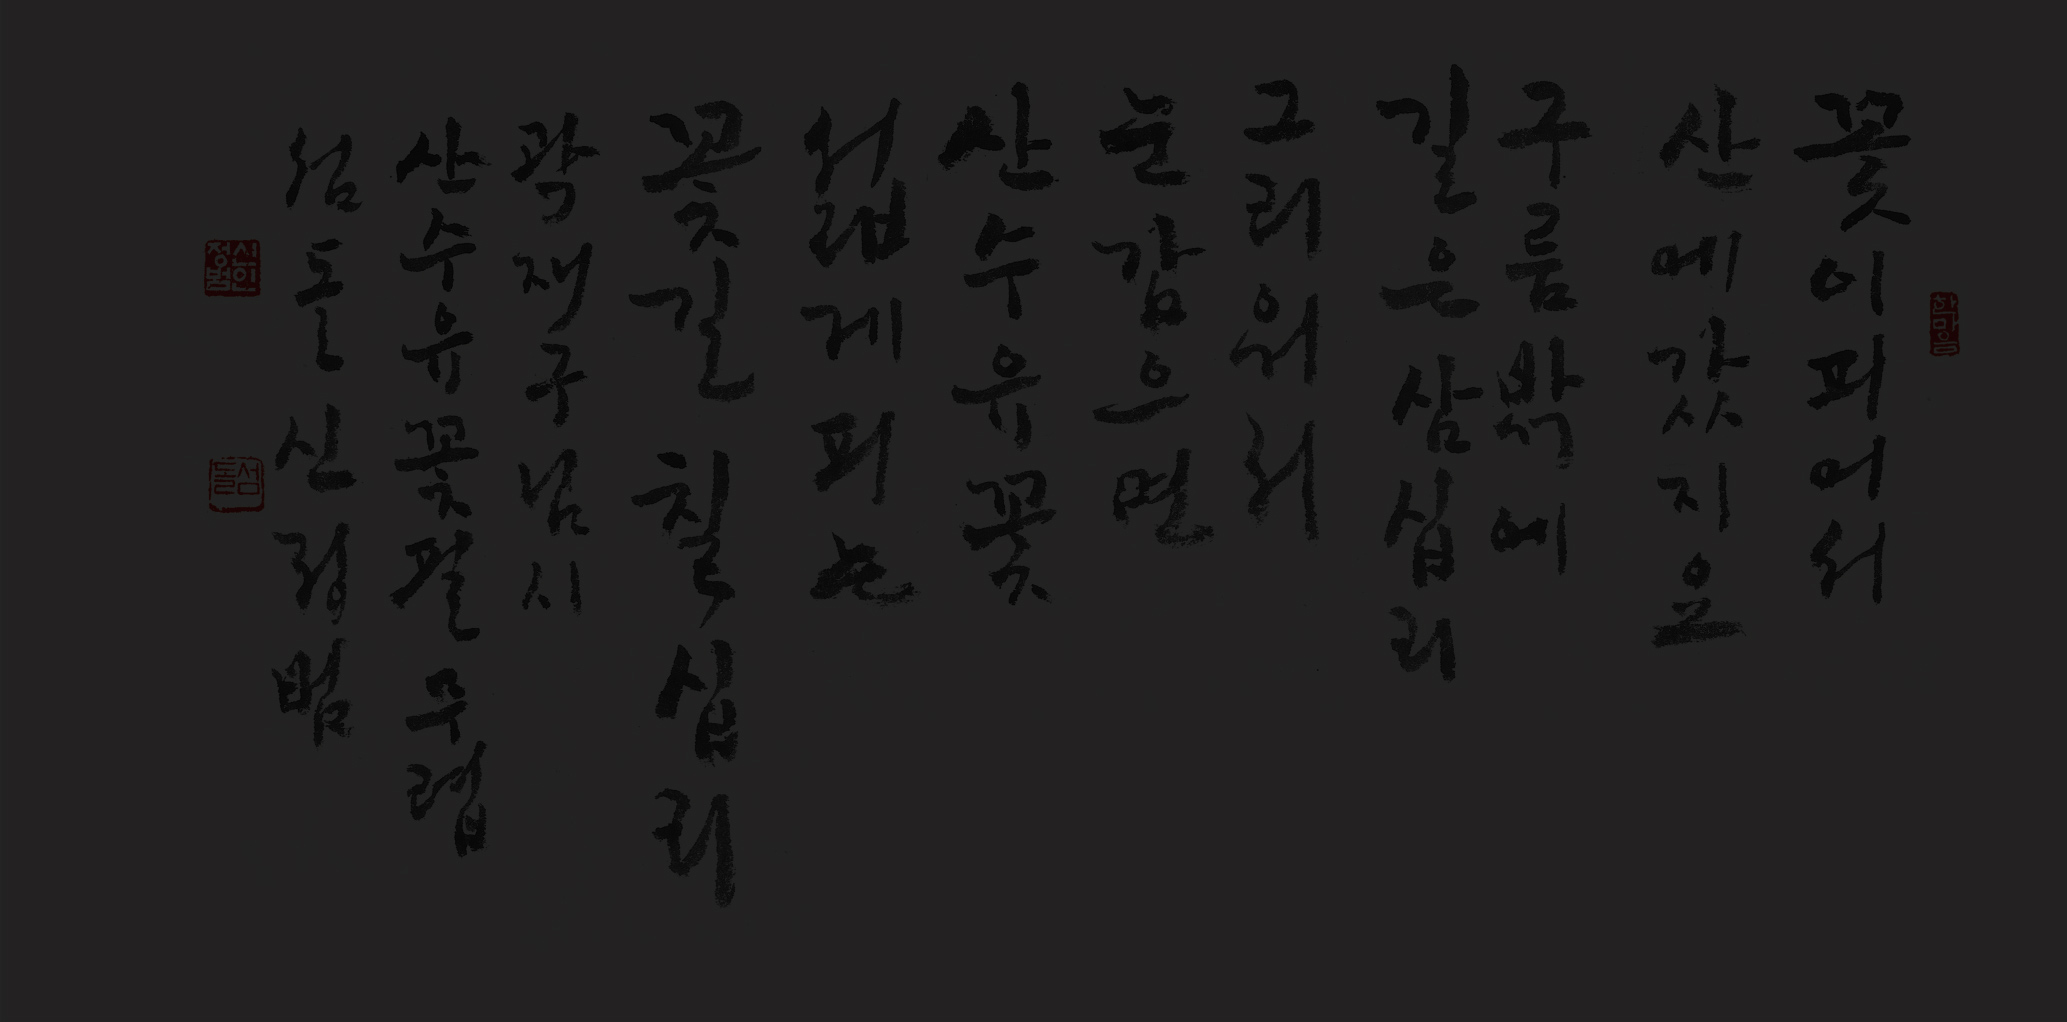 꽃이피어서
산에갔지요
구름밖에
길은삼십리
그리워서
눈감으면
산수유꽃
섧게피는
꽃길 칠십리
곽재구님시
산수유꽃필무렵
섬돌 신정범